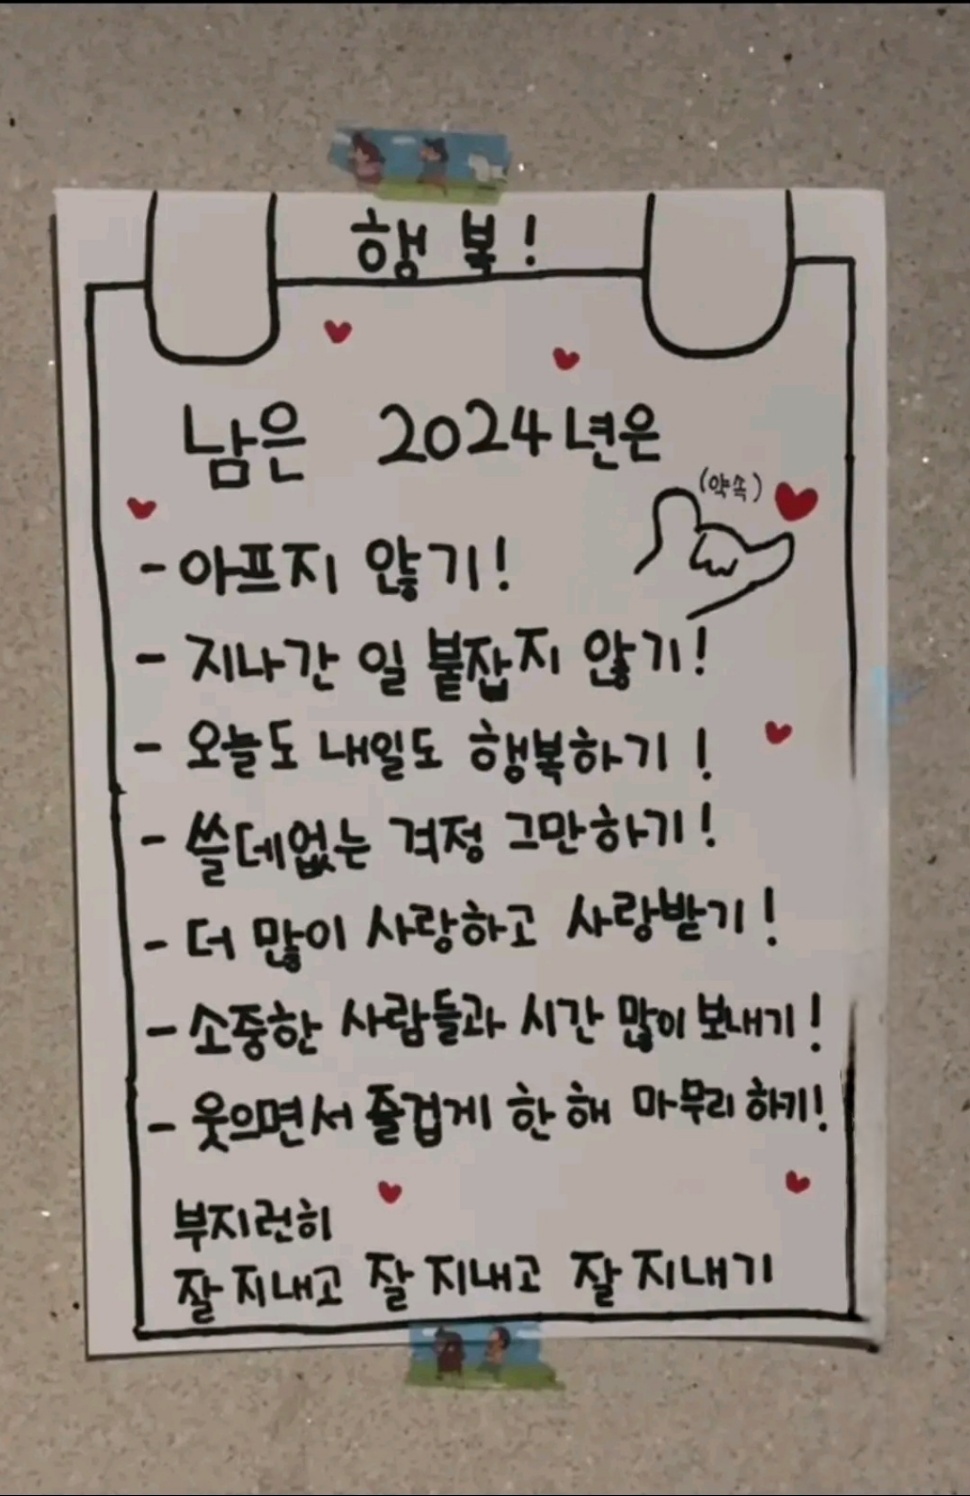 행 복!
남은 2024년은
(약속)
- 아프지 않기!
- 지나간 일 붙잡지 않기!
- 오늘도 내일도 행복하기!
- 쓸데없는 걱정 그만하기!
- 더 많이 사랑하고 사랑받기!
- 소중한 사람들과 시간 많이 보내기!
- 웃으면서 즐겁게 한 해 마무리 하기!
부지런히
잘 지내고 잘 지내고 잘 지내기